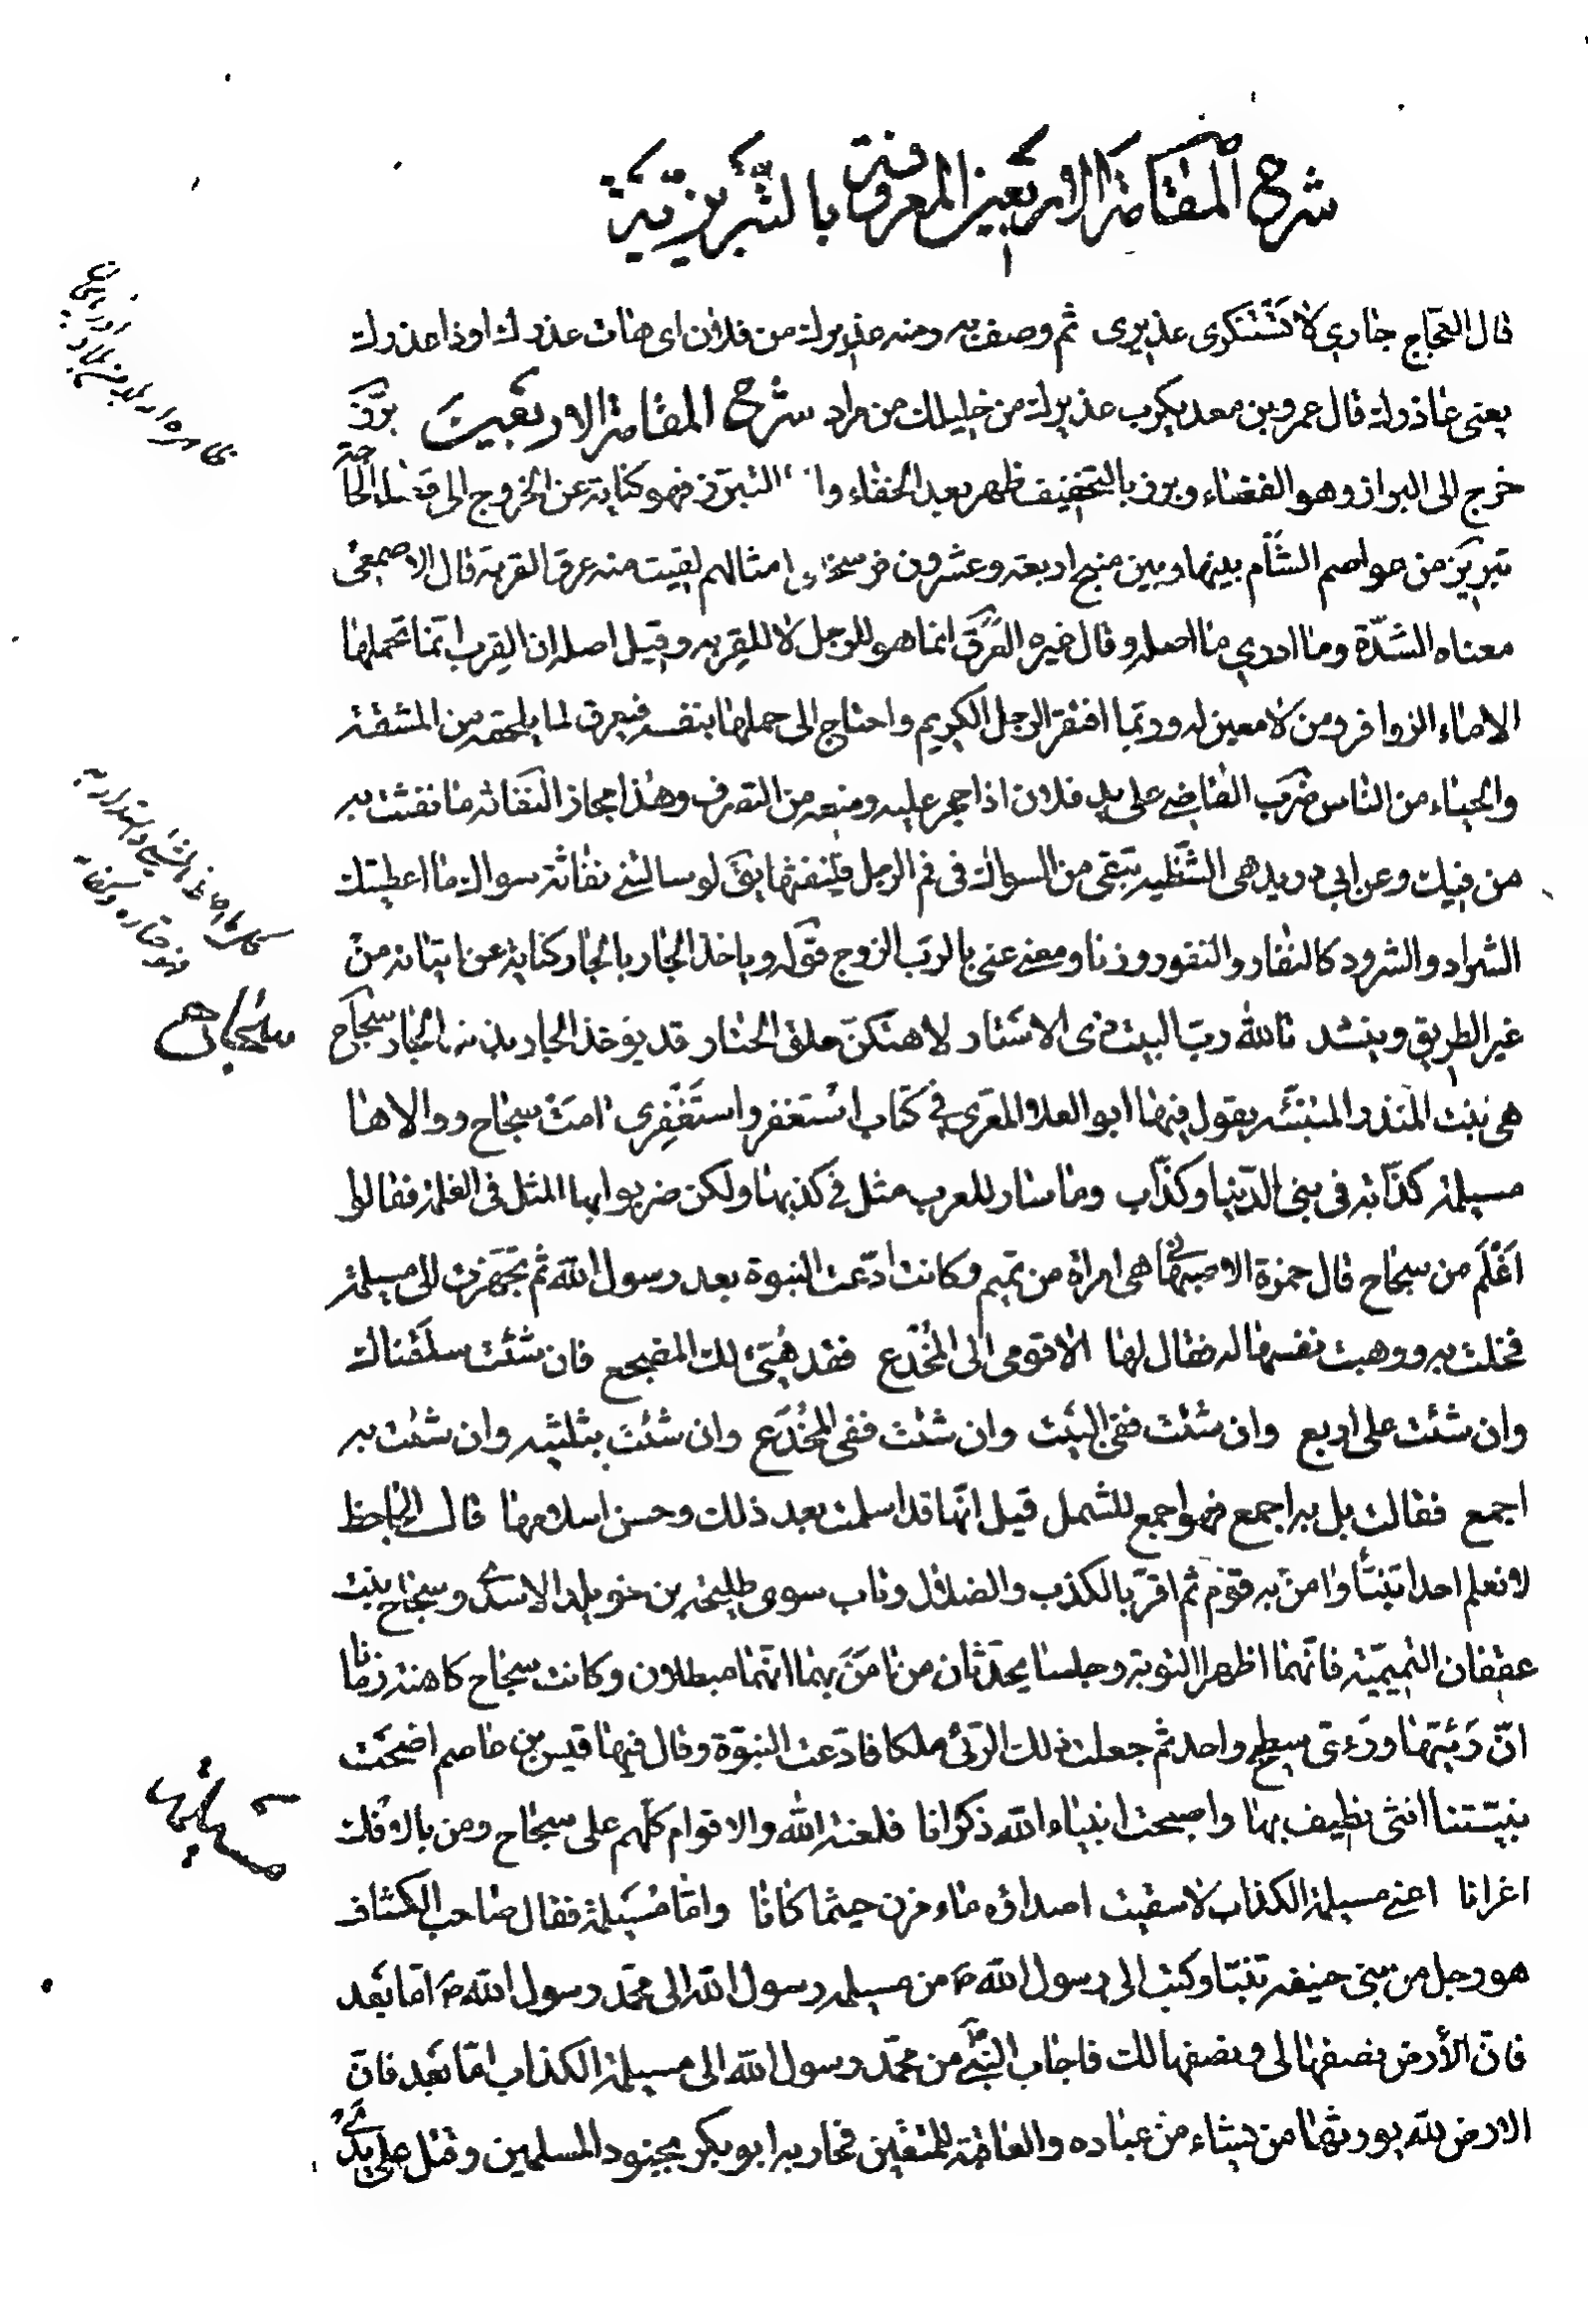 شرح المقامة الاربعين المعروفة بالتبريزية
قال العجاج جاري لا تستنكري عذيري ثم وصف به ومنه عذيرك من فلان اى هات عذرك او ذا عذرك
يعنى عاذرك قال عمرو بن معد يكرب عذيرك من خليلك من مراد شرح المقامة الاربعين برَّز
خرج الى البراز وهو الفضاء وبرز بالتخفيف ظهر بعد الخفاء وا التبرّز فهو كناية عن الخروج الى قضاء الحاجة
تبريز من عواصم الشأم بينها وبين منبج اربعة وعشرون فرسخا امثالهم لقيت منه عرق القربة قال الاصمعى
معناه الشدّة وما ادري ما اصله وقال غيره العَرَق انما هو للرجل لا للقربه وقيل اصله ان القِرب انّما تحملها
الاماء الزوافر ومن لا معين له وربّما افتقر الرجل الكريم واحتاج الى حملها بنفسه فيعرق لما يلحقه من المشقة
والحياء من الناس ضَرَب القاضى على يد فلان اذا حجر عليه ومنعه من التصرف وهذا مجاز النفاثه ما نفثت به
من فيك وعن ابى دريد هى الشَّظيه تبقى من السواك فى فم الرجل فينفثها يق لو سالتنى نفاثة سواك ما اعطيتك
الشراد والشرود كالنفار والنفور وزنا ومعنى عنى بالربّ الزوج قوله وياخذ الجار بالجار كناية عن اتيانه من
غير الطريق وينشد تالله ربّ البيت ذى الاستار لاهتكنّ حلق الحتار قد يؤخذ الجار بذنب الجار سجاح
هى بنت المنذر المتنبّئه يقول فيها ابو العلا المعرى فى كتاب استغفر واستغفرى امت سجاح ووالاها
مسيلمة كذّابة فى بنى الدّنيا وكذّاب وما سار للعرب مثل فى كذبها ولكن ضربوا بها المثل فى الغلمة فقالوا
اَغْلَم من سجاح قال حمزة الاصبهانى هى امراة من تميم وكانت ادّعت النبوة بعد رسول الله ثم تجهزت الى مسيلمة
فخلت به ووهبت نفسها له فقال لها الا قومى الى المُخْدَع فقد هُيّئ لك المضجع فان شئت سلقناك
وان شئت على اربع وان شئت ففى البيت وان شئت ففى المخدع وان شئت بثلثيه وان شئت به
اجمع فقالت بل به اجمع فهو اجمع للشمل قيل انّها قد اسلمت بعد ذلك وحسن اسلامها قال الجاحظ
لا نعلم احدا تنبّأ وامن به قوم ثم اقرّ بالكذب والضلال وتاب سوى طليحة بن خويلد الاسدى وسجاح بنت
عقفان التميميّة فانّهما اظهرا التوبة وجلسا يحدّثان من امن بهما انّهما مبطلان وكانت سجاح كاهنة زمانا
انّ رَئيّها ورَئى سطيح واحد ثم جعلت ذلك الرّئى ملكا فادّعت النبوّة وقال فيها قيس بن عاصم اضحَت
نبيّتنا انثى نطيف بها واصبحت انبياء الله ذكرانا فلعنة الله والاقوام كلّهم على سجاح ومن بالافك
اغرانا اعنى مسيلمة الكذاب لا سقيت اصداؤه ماء مزن حيثما كانا وامّا مُسَيلمة فقال صاحب الكشاف
هو رجل من بنى حنيفه تنبّا وكتب الى رسول الله ص من مسيلمه رسول الله الى محمّد رسول الله ص امّا بَعد
فانّ الأرض نصفها لى ونصفها لك فاجاب النبىّ من محمّد رسول الله الى مسيلمة الكذاب امّا بَعد فانّ
الارض لله يورثها من يشاء من عباده والعاقبة للمتقين فحاربه ابو بكر بجنود المسلمين وقتل على يدى
سجاح
مسيلمه